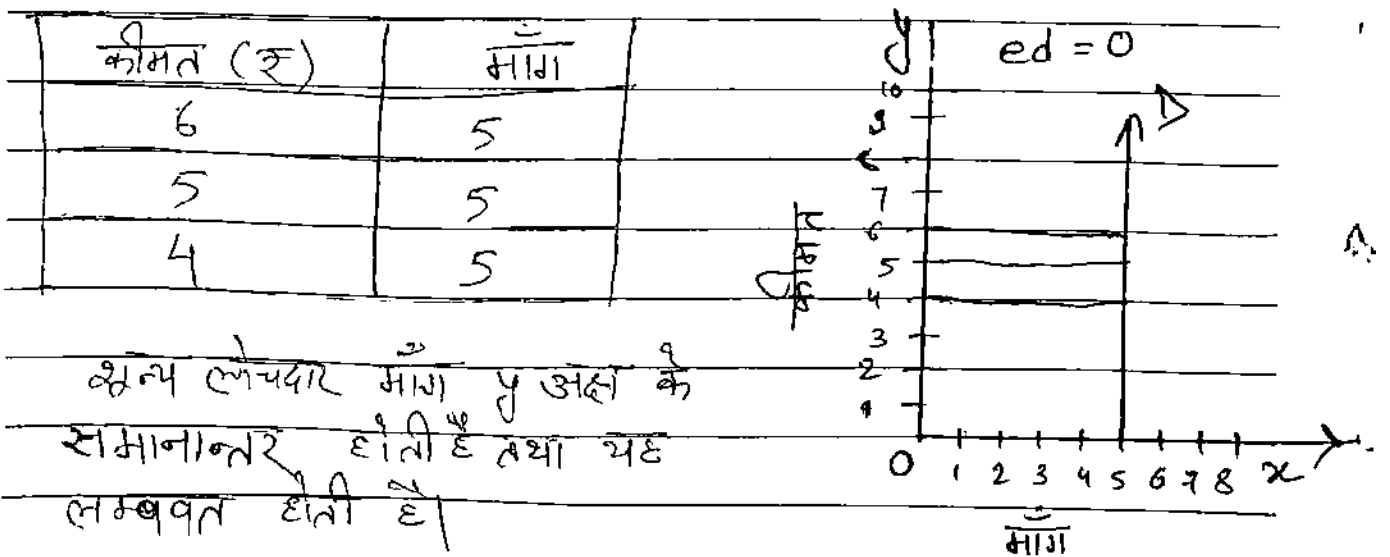 कीमत (रु) माँग
6 5
5 5
4 5
शून्य लोचदार माँग y अक्ष के
समानान्तर होती है तथा यह
लम्बवत होती है।
y ed = 0
D
10
9
7
6
5
4
3
2
1
कीमत
0 1 2 3 4 5 6 7 8 x
माँग